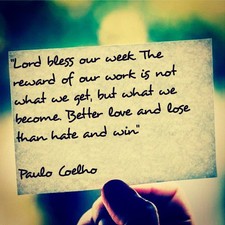 "Lord bless our week. The
reward of our work is not
what we get, but what we
become. Better love and lose
than hate and win."
Paulo Coelho